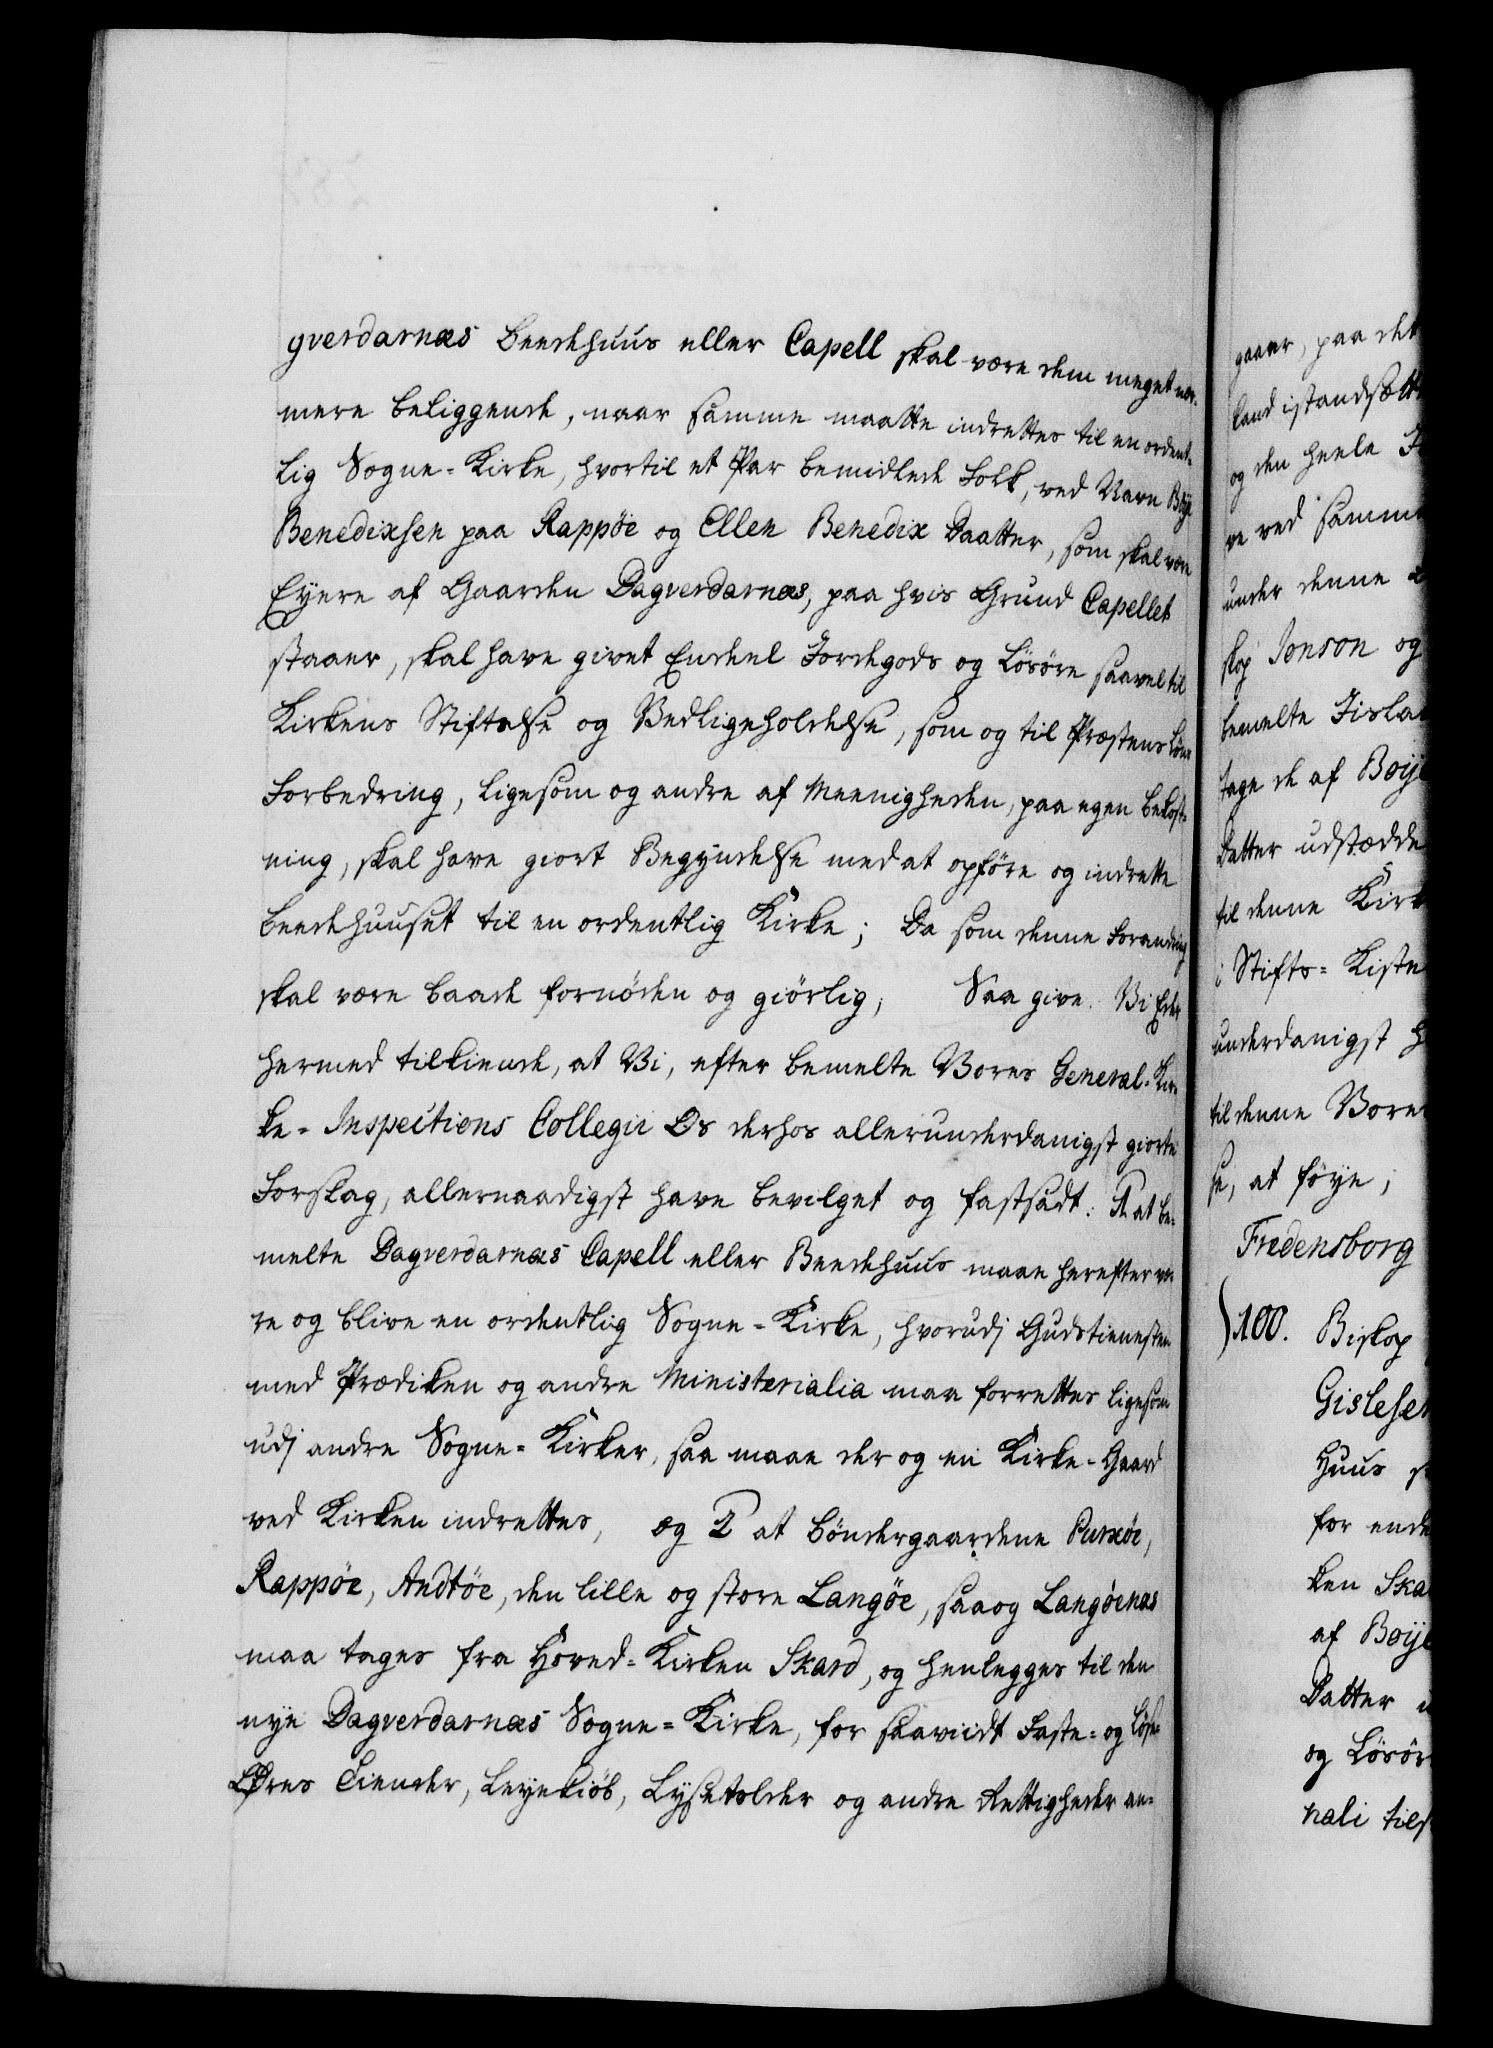 gverdarnæs Beedehuus eller Capell skal være dem meget nær-
mere beliggende, naar samme maatte indrettes til en ordent-
lig Sogne-Kirke, hvortil et Par bemidlede Folk, ved Navn Böye
Benedixsen paa Rappöe og Ellen Benedix Daatter, som skal være
Eyere af Gaarden Dagverdarnæs, paa hvis Grund Capellet
staaer, skal have givet Endeel Jordegods og Lösöre saavel til
Kirkens Stiftelse og Vedligeholdelse, som og til Præstens Löns
Forbedring, ligesom og andre af Meenigheden, paa egen Bekost-
ning, skal have giort Begyndelse med at opföre og indrette
Beedehuuset til en ordentlig Kirke; Da som denne Forandring
skal være baade fornöden og giörlig, Saa give Vi Eder
hermed tilkiende, at Vi, efter bemelte Vores General-Kir-
ke-Inspections Collegii Os derhos allerunderdanigst giorte
Forslag, allernaadigst have bevilget og fastsadt: 1. at be-
melte Dagverdarnæs Capell eller Beedehuus maae herefter væ-
re og blive en ordentlig Sogne-Kirke, hvorudj Gudstienesten
med Prædiken og andre Ministerialia maae forrettes ligesom
udj andre Sogne-Kirker, saa maae der og en Kirke-Gaard
ved Kirken indrettes, og 2 at Böndergaardene Purköe,
Rappöe, Andtöe, den lille og store Langöe, saa og Langöenæs
maa tages fra Hoved-Kirken Skard, og henlegges til den
nye Dagverdarnæs Sogne-Kirke, for saaviidt Faste- og Löse-
Öres Tiender, Leyekiöb, Lysetolder og andre Rettigheder an-
gaaer, paa det
land istandsætt
og den heele
re ved samme
under denne
skop Jonson og
bemelte Jisla
tage de af Boye
Datter udstædde
til denne Kirk
i Stifts-Kiste
underdanigst
til denne Vore
se, at föye;
Fredensborg
100. Biskop
Gislesen
Huus
for ende
ken Ska
af Boye
Datter
og Lösör
nali tils